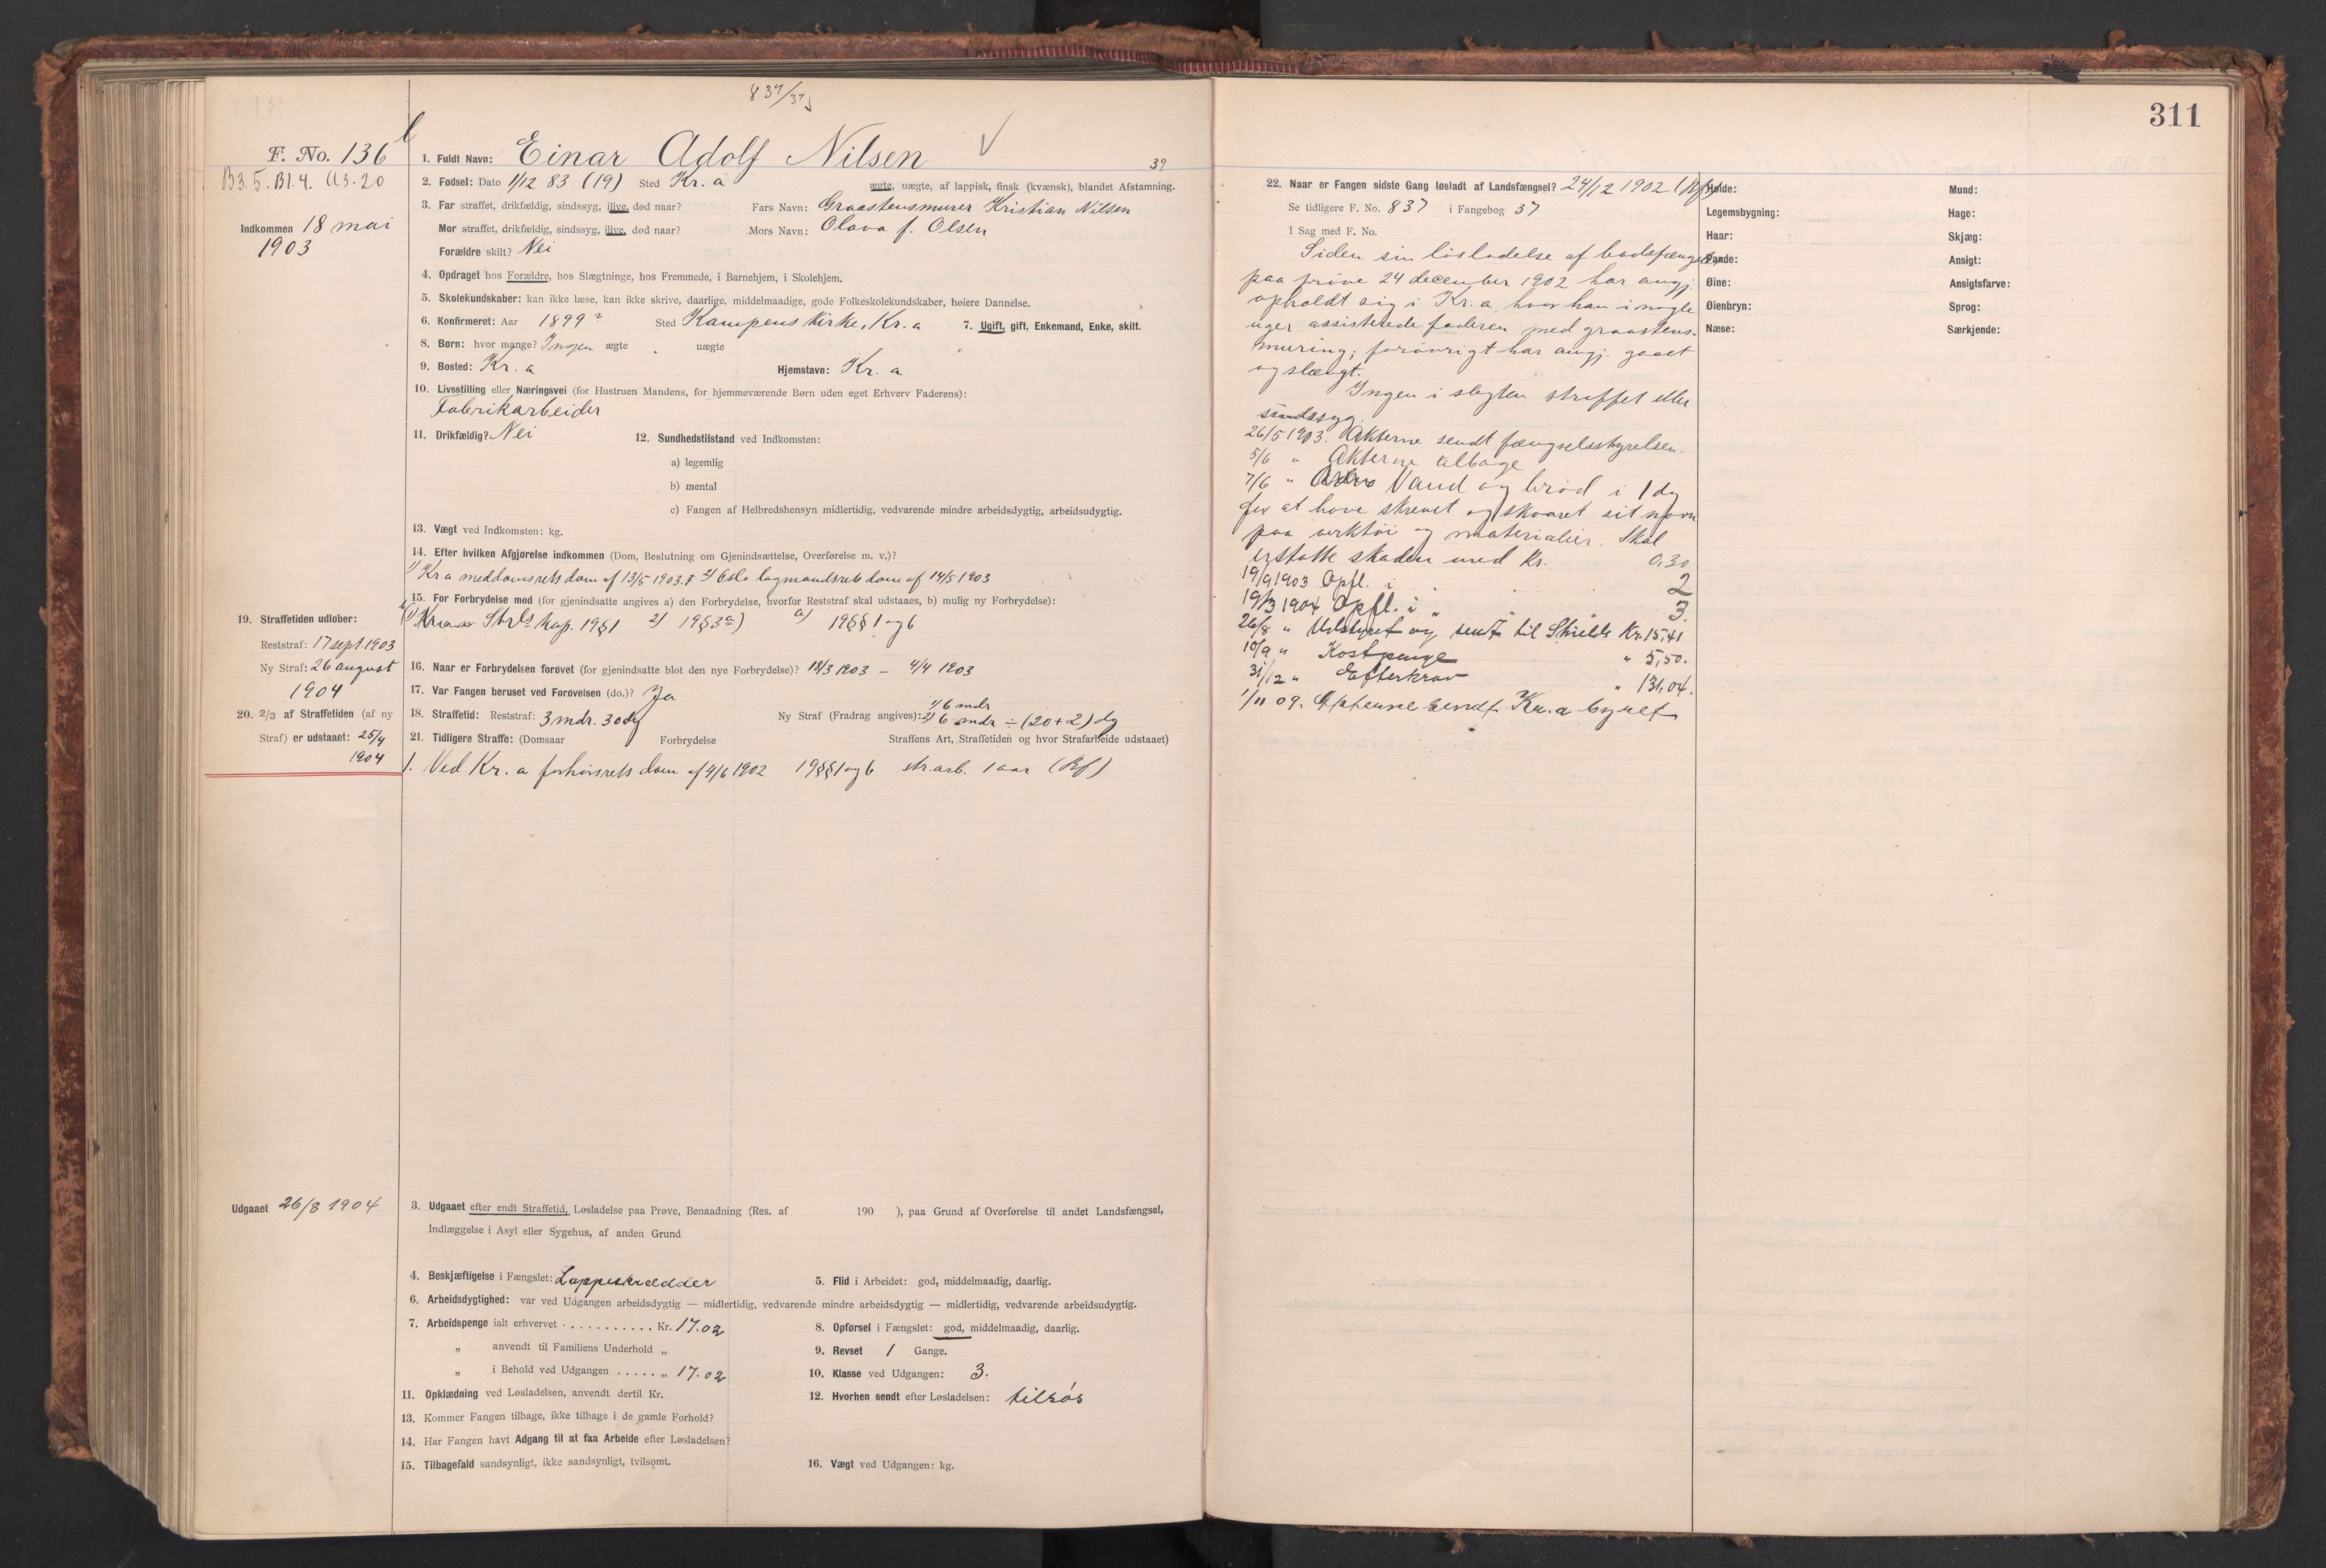 837/37
311
F. No. 136
B3.5. Bl.4. A3-20
Indkommen 18 mai
1903
1. Fuldt Navn: Einar Adolf Nilsen
39
2. Fødsel: Dato 1/12 83 (19) Sted Kr.a ægte, uægte, af lappisk, finsk (kvænsk), blandet Afstamning.
3. Far straffet, drikfældig, sindssyg, ilive, død naar? Fars Navn: Graastensmurer Kristian Nilsen
Mor straffet, drikfældig, sindssyg, ilive, død naar? Mors Navn: Olava f. Olsen
Forældre skilt? Nei
4. Opdraget hos Forældre, hos Slægtninge, hos Fremmede, i Barnehjem, i Skolehjem.
5. Skolekundskaber: kan ikke læse, kan ikke skrive, daarlige, middelmaadige, gode Folkeskolekundskaber, høiere Dannelse.
6. Konfirmeret: Aar 1899? Sted Kampens Kirke, Kr.a 7. Ugift, gift, Enkemand, Enke, skilt.
8. Børn: hvor mange? Ingen ægte uægte
9. Bosted: Kr.a Hjemstavn: Kr.a
10. Livsstilling eller Næringsvei (for Hustruen Mandens, for hjemmeværende Børn uden eget Erhverv Faderens):
Fabrikarbeider
11. Drikfældig? Nei 12. Sundhedstilstand ved Indkomsten:
a) legemlig
b) mental
c) Fangen af Helbredshensyn midlertidig, vedvarende mindre arbeidsdygtig, arbeidsudygtig.
13. Vægt ved Indkomsten: kg.
14. Efter hvilken Afgjørelse indkommen (Dom, Beslutning om Gjenindsættelse, Overførelse m. v.)?
1) Kr a meddomsrets dom af 13/5 1903. 2) Oslo lagmandsrets dom af 14/5 1903
15. For Forbrydelse mod (for gjenindsatte angives a) den Forbrydelse, hvorfor Reststraf skal udstaaes, b) mulig ny Forbrydelse):
Strls Kap. 19§1 2) 19§3a) a) 19§§1 og 6
16. Naar er Forbrydelsen forøvet (for gjenindsatte blot den nye Forbrydelse)? 18/3 1903 – 4/4 1903
17. Var Fangen beruset ved Forøvelsen (do.)? Ja
18. Straffetid: Reststraf: 3 mdr. 30 dg Ny Straf (Fradrag angives): 1) 6 mdr
2) 6 mdr ÷ (20+2) dg
21. Tidligere Straffe: (Domsaar Forbrydelse Straffens Art, Straffetiden og hvor Strafarbeide udstaaet)
1. Ved Kr.a forhørsrets dom af 4/6 1902 19§§1 og 6 str.arb. 1 aar (Bf)
19. Straffetiden udløber:
Reststraf: 17 sept. 1903
Ny Straf: 26 august
1904
20. 2/3 af Straffetiden (af ny
Straf) er udstaaet: 25/4
1904
Udgaaet 26/8 1904
3. Udgaaet efter endt Straffetid, Løsladelse paa Prøve, Benaadning (Res. af 190 ), paa Grund af Overførelse til andet Landsfængsel,
Indlæggelse i Asyl eller Sygehus, af anden Grund
4. Beskjæftigelse i Fængslet: Lappeskrædder 5. Flid i Arbeidet: god, middelmaadig, daarlig.
6. Arbeidsdygtighed: var ved Udgangen arbeidsdygtig — midlertidig, vedvarende mindre arbeidsdygtig — midlertidig, vedvarende arbeidsudygtig.
7. Arbeidspenge ialt erhvervet . . . . . . . . . . Kr. 17.02 8. Opførsel i Fængslet: god, middelmaadig, daarlig.
„ anvendt til Familiens Underhold „ 9. Revset 1 Gange.
„ i Behold ved Udgangen . . . . . „ 17.02 10. Klasse ved Udgangen: 3.
11. Opklædning ved Løsladelsen, anvendt dertil Kr. 12. Hvorhen sendt efter Løsladelsen: tilsøs
13. Kommer Fangen tilbage, ikke tilbage i de gamle Forhold?
14. Har Fangen havt Adgang til at faa Arbeide efter Løsladelsen?
15. Tilbagefald sandsynligt, ikke sandsynligt, tvilsomt. 16. Vægt ved Udgangen: kg.
22. Naar er Fangen sidste Gang løsladt af Landsfængsel? 24/12 1902 (Bf)
Se tidligere F. No. 837 i Fangebog 37
I Sag med F. No.
Siden sin løsladelse af bodsfængslet
paa prøve 24 december 1902 har angj.
opholdt sig i Kr.a, hvor han i nogle
uger assisterede faderen med graastens-
muring; forøvrigt har angj. gaaet
og slængt.
Ingen i slegten straffet eller
sindssyg.
26/5 1903. Akterne sendt fængselsstyrelsen.
5/6 " Akterne tilbage
7/6 " Vand og brød i 1 dg
for at have skrevet og skaaret sit navn
paa verktøi og materialier. Skal
erstatte skaden med Kr. 0,30
19/9 1903 Opfl. i 2
19/3 1904 Opfl. i " 3.
26/8 " Udstyret og sendt til Shields Kr. 15,41
10/9 " Kostpenge " 5,50.
31/12 " Efterkrav " 131,04.
1/11 09. Akterne sendt Kr.a byret
Høide:
Legemsbygning:
Haar:
Pande:
Øine:
Øienbryn:
Næse:
Mund:
Hage:
Skjæg:
Ansigt:
Ansigtsfarve:
Sprog:
Særkjende: